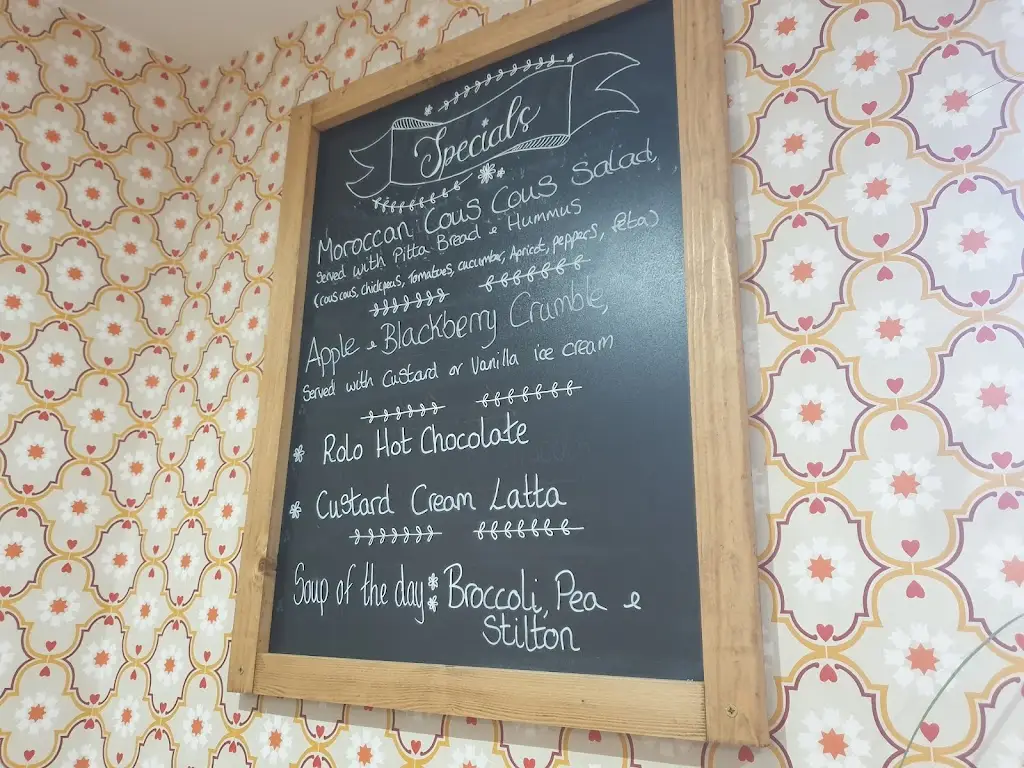 Specials
Moroccan Cous Cous Salad,
Served with Pitta Bread e Hummus
(cous cous, Chickpeas, Tomatoes, cucumber, Apricot, peppers, feta)
Apple e Blackberry Crumble,
Served with Custard or Vanilla ice cream
Rolo Hot Chocolate
Custard Cream Latta
Soup of the day: Broccoli, Pea e
Stilton